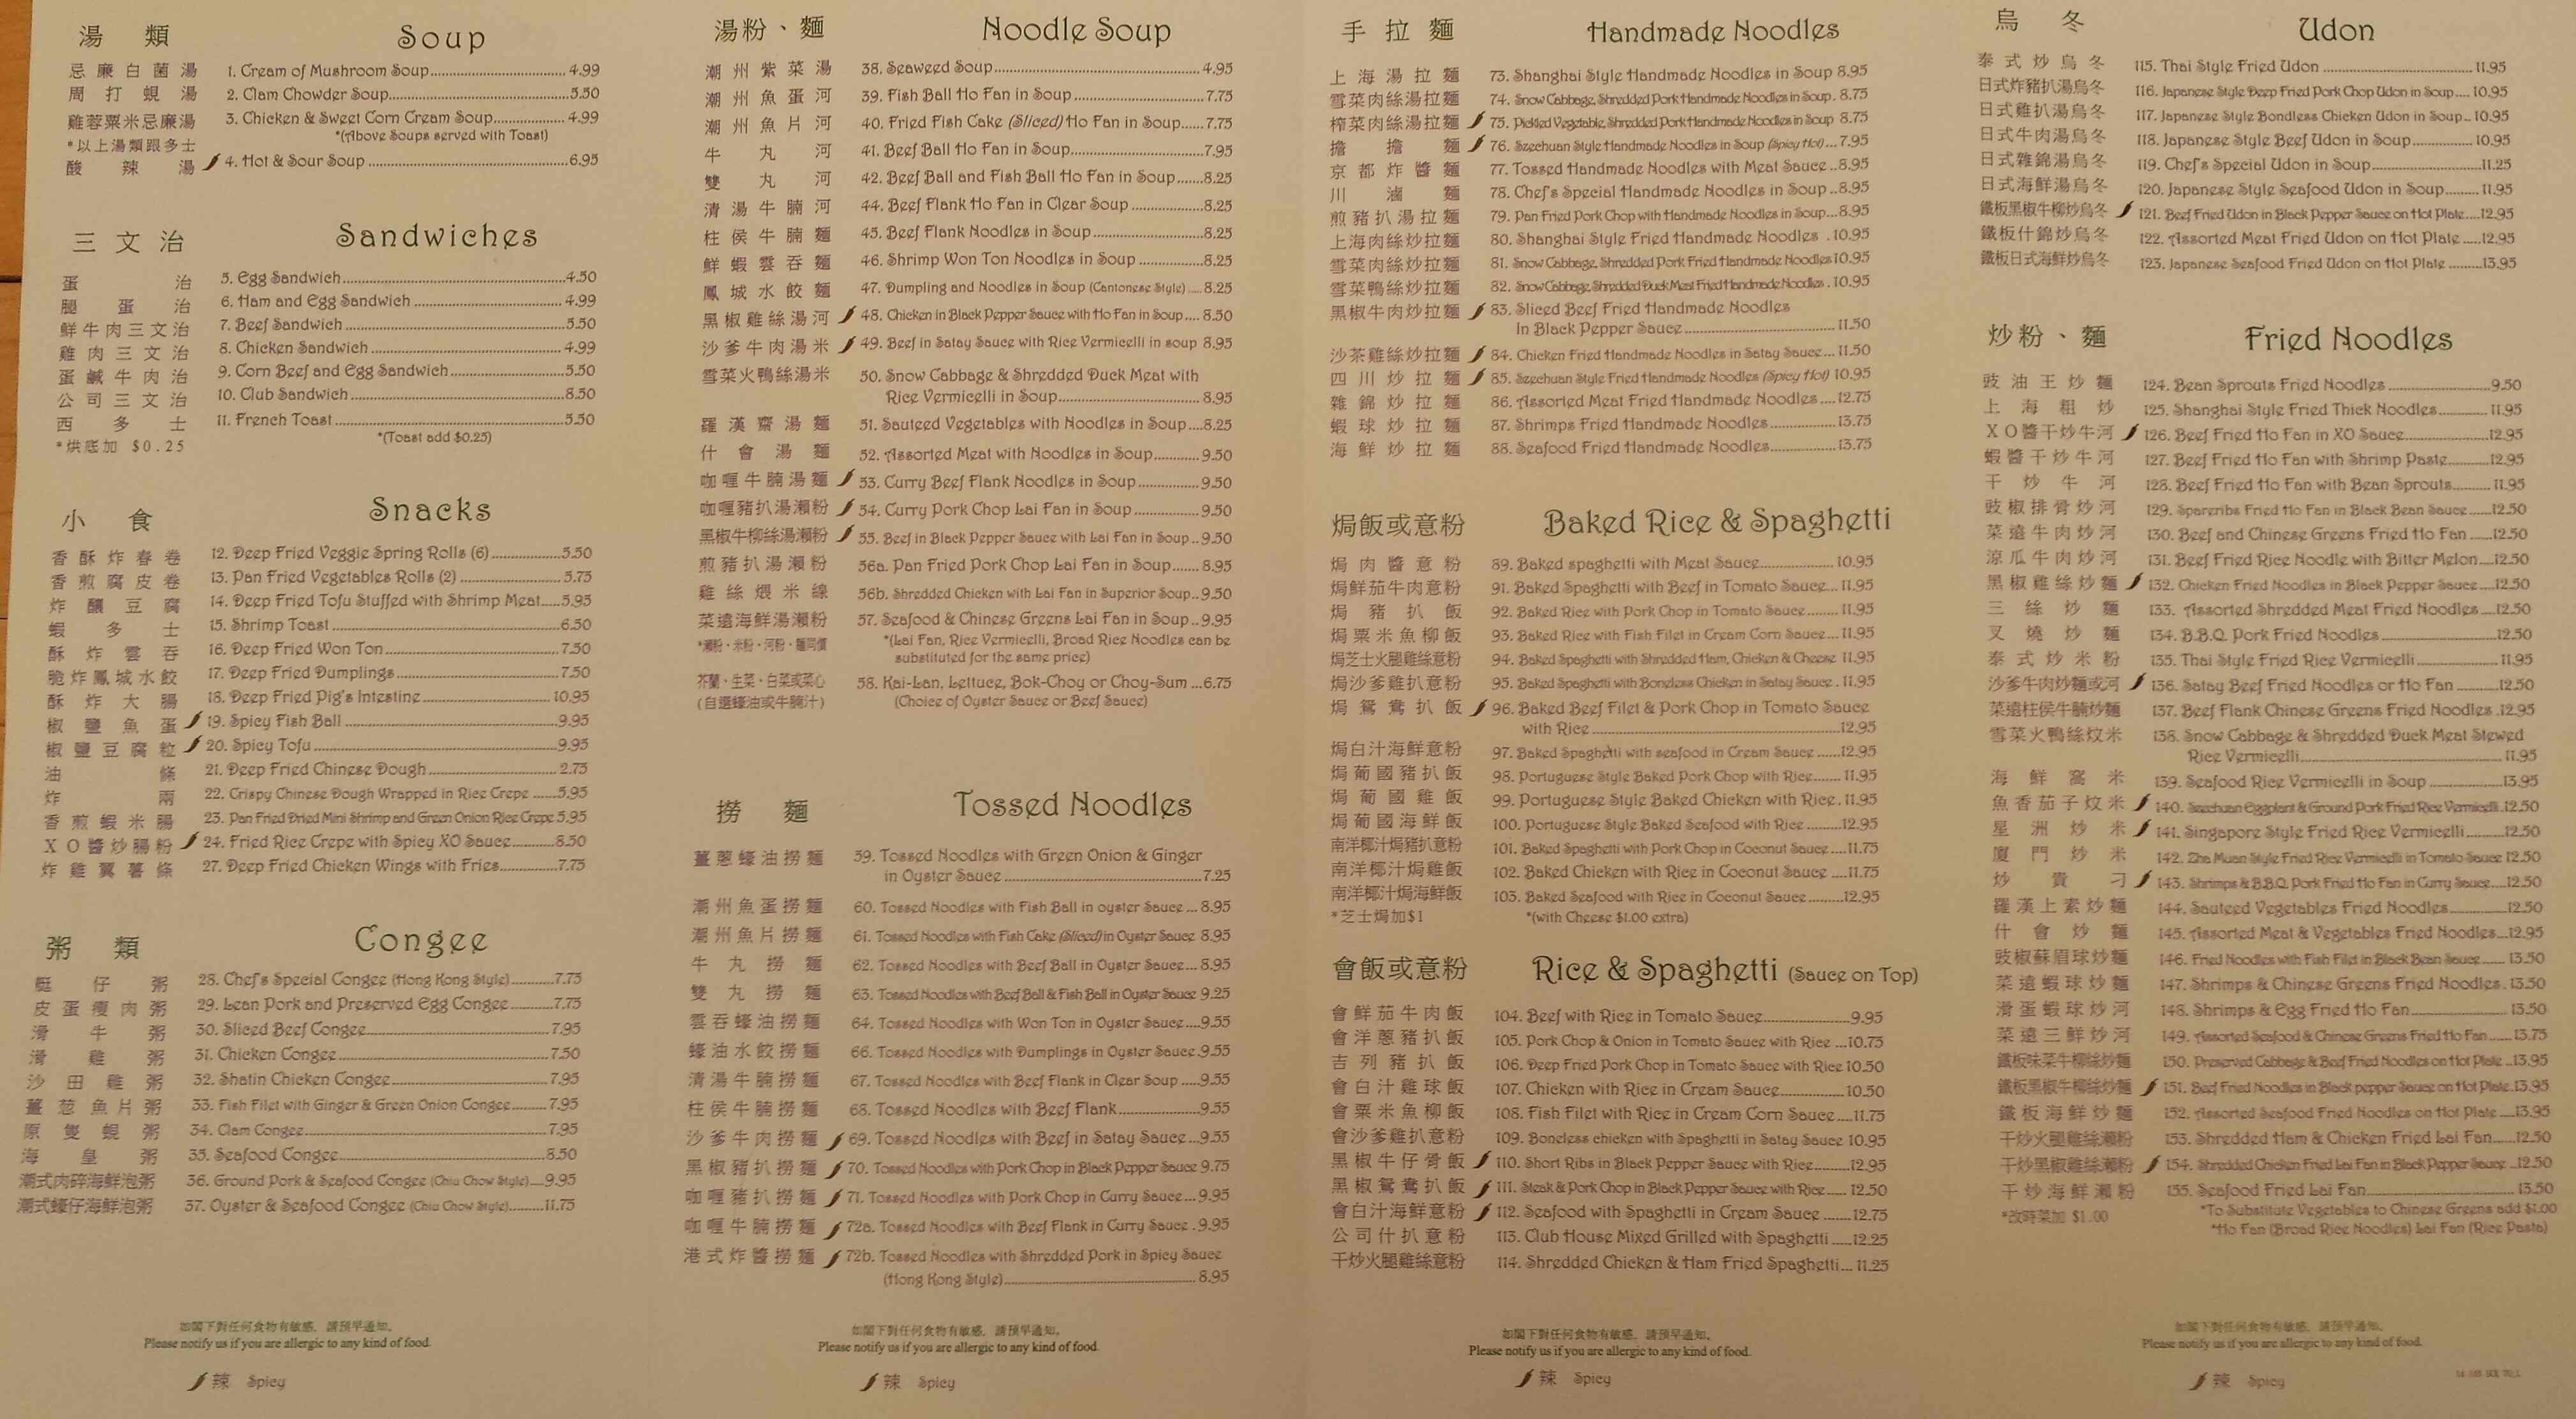 湯類 Soup
忌廉白菌湯 1. Cream of Mushroom Soup 4.99
周打蜆湯 2. Clam Chowder Soup 5.50
雞蓉粟米忌廉湯 3. Chicken & Sweet Corn Cream Soup 4.99
*以上湯類跟多士 *(Above Soups served with Toast)
酸辣湯 4. Hot & Sour Soup 6.95
三文治 Sandwiches
蛋治 5. Egg Sandwich 4.50
腿蛋治 6. Ham and Egg Sandwich 4.99
鮮牛肉三文治 7. Beef Sandwich 5.50
雞肉三文治 8. Chicken Sandwich 4.99
蛋鹹牛肉治 9. Corn Beef and Egg Sandwich 5.50
公司三文治 10. Club Sandwich 8.50
西多士 11. French Toast 5.50
*烘底加 $0.25 *(Toast add $0.25)
小食 Snacks
香酥炸春卷 12. Deep Fried Veggie Spring Rolls (6) 5.50
香煎腐皮卷 13. Pan Fried Vegetables Rolls (2) 5.75
炸釀豆腐 14. Deep Fried Tofu Stuffed with Shrimp Meat 5.95
蝦多士 15. Shrimp Toast 6.50
酥炸雲吞 16. Deep Fried Won Ton 7.50
脆炸鳳城水餃 17. Deep Fried Dumplings 7.50
酥炸大腸 18. Deep Fried Pig's Intestine 10.95
椒鹽魚蛋 19. Spicy Fish Ball 9.95
椒鹽豆腐粒 20. Spicy Tofu 9.95
油條 21. Deep Fried Chinese Dough 2.75
炸兩 22. Crispy Chinese Dough Wrapped in Rice Crepe 5.95
香煎蝦米腸 23. Pan Fried Dried Mini Shrimp and Green Onion Rice Crepe 5.95
XO醬炒腸粉 24. Fried Rice Crepe with Spicy XO Sauce 8.50
炸雞翼薯條 27. Deep Fried Chicken Wings with Fries 7.75
粥類 Congee
艇仔粥 28. Chef's Special Congee (Hong Kong Style) 7.75
皮蛋瘦肉粥 29. Lean Pork and Preserved Egg Congee 7.75
滑牛粥 30. Sliced Beef Congee 7.95
滑雞粥 31. Chicken Congee 7.50
沙田雞粥 32. Shatin Chicken Congee 7.95
薑葱魚片粥 33. Fish Filet with Ginger & Green Onion Congee 7.95
原隻蜆粥 34. Clam Congee 7.95
海皇粥 35. Seafood Congee 8.50
潮式肉碎海鮮泡粥 36. Ground Pork & Seafood Congee (Chiu Chow Style) 9.95
潮式蠔仔海鮮泡粥 37. Oyster & Seafood Congee (Chiu Chow Style) 11.75
如閣下對任何食物有敏感，請預早通知。
Please notify us if you are allergic to any kind of food.
辣 Spicy
湯粉、麵 Noodle Soup
潮州紫菜湯 38. Seaweed Soup 4.95
潮州魚蛋河 39. Fish Ball Ho Fan in Soup 7.75
潮州魚片河 40. Fried Fish Cake (Sliced) Ho Fan in Soup 7.75
牛丸河 41. Beef Ball Ho Fan in Soup 7.95
雙丸河 42. Beef Ball and Fish Ball Ho Fan in Soup 8.25
清湯牛腩河 44. Beef Flank Ho Fan in Clear Soup 8.25
柱侯牛腩麵 45. Beef Flank Noodles in Soup 8.25
鮮蝦雲吞麵 46. Shrimp Won Ton Noodles in Soup 8.25
鳳城水餃麵 47. Dumpling and Noodles in Soup (Cantonese Style) 8.25
黑椒雞絲湯河 48. Chicken in Black Pepper Sauce with Ho Fan in Soup 8.50
沙爹牛肉湯米 49. Beef in Satay Sauce with Rice Vermicelli in soup 8.95
雪菜火鴨絲湯米 50. Snow Cabbage & Shredded Duck Meat with
Rice Vermicelli in Soup 8.95
羅漢齋湯麵 51. Sauteed Vegetables with Noodles in Soup 8.25
什會湯麵 52. Assorted Meat with Noodles in Soup 9.50
咖喱牛腩湯麵 53. Curry Beef Flank Noodles in Soup 9.50
咖喱豬扒湯瀨粉 54. Curry Pork Chop Lai Fan in Soup 9.50
黑椒牛柳絲湯瀨粉 55. Beef in Black Pepper Sauce with Lai Fan in Soup 9.50
煎豬扒湯瀨粉 56a. Pan Fried Pork Chop Lai Fan in Soup 8.95
雞絲煨米線 56b. Shredded Chicken with Lai Fan in Superior Soup 9.50
菜遠海鮮湯瀨粉 57. Seafood & Chinese Greens Lai Fan in Soup 9.95
*瀨粉、米粉、河粉、麵同價 *(Lai Fan, Rice Vermicelli, Broad Rice Noodles can be
substituted for the same price)
芥蘭、生菜、白菜或菜心 58. Kai-Lan, Lettuce, Bok-Choy or Choy-Sum 6.75
(自選蠔油或牛腩汁) (Choice of Oyster Sauce or Beef Sauce)
撈麵 Tossed Noodles
薑蔥蠔油撈麵 59. Tossed Noodles with Green Onion & Ginger
in Oyster Sauce 7.25
潮州魚蛋撈麵 60. Tossed Noodles with Fish Ball in oyster Sauce 8.95
潮州魚片撈麵 61. Tossed Noodles with Fish Cake (Sliced) in Oyster Sauce 8.95
牛丸撈麵 62. Tossed Noodles with Beef Ball in Oyster Sauce 8.95
雙丸撈麵 63. Tossed Noodles with Beef Ball & Fish Ball in Oyster Sauce 9.25
雲吞蠔油撈麵 64. Tossed Noodles with Won Ton in Oyster Sauce 9.55
蠔油水餃撈麵 66. Tossed Noodles with Dumplings in Oyster Sauce 9.55
清湯牛腩撈麵 67. Tossed Noodles with Beef Flank in Clear Soup 9.55
柱侯牛腩撈麵 68. Tossed Noodles with Beef Flank 9.55
沙爹牛肉撈麵 69. Tossed Noodles with Beef in Satay Sauce 9.55
黑椒豬扒撈麵 70. Tossed Noodles with Pork Chop in Black Pepper Sauce 9.75
咖喱豬扒撈麵 71. Tossed Noodles with Pork Chop in Curry Sauce 9.95
咖喱牛腩撈麵 72a. Tossed Noodles with Beef Flank in Curry Sauce 9.95
港式炸醬撈麵 72b. Tossed Noodles with Shredded Pork in Spicy Sauce
(Hong Kong Style) 8.95
如閣下對任何食物有敏感，請預早通知。
Please notify us if you are allergic to any kind of food.
辣 Spicy
手拉麵 Handmade Noodles
上海湯拉麵 73. Shanghai Style Handmade Noodles in Soup 8.95
雪菜肉絲湯拉麵 74. Snow Cabbage, Shredded Pork Handmade Noodles in Soup 8.75
榨菜肉絲湯拉麵 75. Pickled Vegetable, Shredded Pork Handmade Noodles in Soup 8.75
擔擔麵 76. Szechuan Style Handmade Noodles in Soup (Spicy Hot) 7.95
京都炸醬麵 77. Tossed Handmade Noodles with Meat Sauce 8.95
川滷麵 78. Chef's Special Handmade Noodles in Soup 8.95
煎豬扒湯拉麵 79. Pan Fried Pork Chop with Handmade Noodles in Soup 8.95
上海肉絲炒拉麵 80. Shanghai Style Fried Handmade Noodles 10.95
雪菜肉絲炒拉麵 81. Snow Cabbage, Shredded Pork Fried Handmade Noodles 10.95
雪菜鴨絲炒拉麵 82. Snow Cabbage, Shredded Duck Meat Fried Handmade Noodles 10.95
黑椒牛肉炒拉麵 83. Sliced Beef Fried Handmade Noodles
In Black Pepper Sauce 11.50
沙茶雞絲炒拉麵 84. Chicken Fried Handmade Noodles in Satay Sauce 11.50
四川炒拉麵 85. Szechuan Style Fried Handmade Noodles (Spicy Hot) 10.95
雜錦炒拉麵 86. Assorted Meat Fried Handmade Noodles 12.75
蝦球炒拉麵 87. Shrimps Fried Handmade Noodles 13.75
海鮮炒拉麵 88. Seafood Fried Handmade Noodles 13.75
焗飯或意粉 Baked Rice & Spaghetti
焗肉醬意粉 89. Baked spaghetti with Meat Sauce 10.95
焗鮮茄牛肉意粉 91. Baked Spaghetti with Beef in Tomato Sauce 11.95
焗豬扒飯 92. Baked Rice with Pork Chop in Tomato Sauce 11.95
焗粟米魚柳飯 93. Baked Rice with Fish Filet in Cream Corn Sauce 11.95
焗芝士火腿雞絲意粉 94. Baked Spaghetti with Shredded Ham, Chicken & Cheese 11.95
焗沙爹雞扒意粉 95. Baked Spaghetti with Boneless Chicken in Satay Sauce 11.95
焗鴛鴦扒飯 96. Baked Beef Filet & Pork Chop in Tomato Sauce
with Rice 12.95
焗白汁海鮮意粉 97. Baked Spaghetti with seafood in Cream Sauce 12.95
焗葡國豬扒飯 98. Portuguese Style Baked Pork Chop with Rice 11.95
焗葡國雞飯 99. Portuguese Style Baked Chicken with Rice 11.95
焗葡國海鮮飯 100. Portuguese Style Baked Seafood with Rice 12.95
南洋椰汁焗豬扒意粉 101. Baked Spaghetti with Pork Chop in Coconut Sauce 11.75
南洋椰汁焗雞飯 102. Baked Chicken with Rice in Coconut Sauce 11.75
南洋椰汁焗海鮮飯 103. Baked Seafood with Rice in Coconut Sauce 12.95
*芝士焗加$1 *(with Cheese $1.00 extra)
會飯或意粉 Rice & Spaghetti (Sauce on Top)
會鮮茄牛肉飯 104. Beef with Rice in Tomato Sauce 9.95
會洋蔥豬扒飯 105. Pork Chop & Onion in Tomato Sauce with Rice 10.75
吉列豬扒飯 106. Deep Fried Pork Chop in Tomato Sauce with Rice 10.50
會白汁雞球飯 107. Chicken with Rice in Cream Sauce 10.50
會粟米魚柳飯 108. Fish Filet with Rice in Cream Corn Sauce 11.75
會沙爹雞扒意粉 109. Boneless chicken with Spaghetti in Satay Sauce 10.95
黑椒牛仔骨飯 110. Short Ribs in Black Pepper Sauce with Rice 12.95
黑椒鴛鴦扒飯 111. Steak & Pork Chop in Black Pepper Sauce with Rice 12.50
會白汁海鮮意粉 112. Seafood with Spaghetti in Cream Sauce 12.75
公司什扒意粉 113. Club House Mixed Grilled with Spaghetti 12.25
干炒火腿雞絲意粉 114. Shredded Chicken & Ham Fried Spaghetti 11.25
如閣下對任何食物有敏感，請預早通知。
Please notify us if you are allergic to any kind of food.
辣 Spicy
烏冬 Udon
泰式炒烏冬 115. Thai Style Fried Udon 11.95
日式炸豬扒湯烏冬 116. Japanese Style Deep Fried Pork Chop Udon in Soup 10.95
日式雞扒湯烏冬 117. Japanese Style Bondless Chicken Udon in Soup 10.95
日式牛肉湯烏冬 118. Japanese Style Beef Udon in Soup 10.95
日式雜錦湯烏冬 119. Chef's Special Udon in Soup 11.25
日式海鮮湯烏冬 120. Japanese Style Seafood Udon in Soup 11.95
鐵板黑椒牛柳炒烏冬 121. Beef Fried Udon in Black Pepper Sauce on Hot Plate 12.95
鐵板什錦炒烏冬 122. Assorted Meat Fried Udon on Hot Plate 12.95
鐵板日式海鮮炒烏冬 123. Japanese Seafood Fried Udon on Hot Plate 13.95
炒粉、麵 Fried Noodles
豉油王炒麵 124. Bean Sprouts Fried Noodles 9.50
上海粗炒 125. Shanghai Style Fried Thick Noodles 11.95
XO醬干炒牛河 126. Beef Fried Ho Fan in XO Sauce 12.95
蝦醬干炒牛河 127. Beef Fried Ho Fan with Shrimp Paste 12.95
干炒牛河 128. Beef Fried Ho Fan with Bean Sprouts 11.95
豉椒排骨炒河 129. Spareribs Fried Ho Fan in Black Bean Sauce 12.50
菜遠牛肉炒河 130. Beef and Chinese Greens Fried Ho Fan 12.50
涼瓜牛肉炒河 131. Beef Fried Rice Noodle with Bitter Melon 12.50
黑椒雞絲炒麵 132. Chicken Fried Noodles in Black Pepper Sauce 12.50
三絲炒麵 133. Assorted Shredded Meat Fried Noodles 12.50
叉燒炒麵 134. B.B.Q. Pork Fried Noodles 12.50
泰式炒米粉 135. Thai Style Fried Rice Vermicelli 11.95
沙爹牛肉炒麵或河 136. Satay Beef Fried Noodles or Ho Fan 12.50
菜遠柱侯牛腩炒麵 137. Beef Flank Chinese Greens Fried Noodles 12.95
雪菜火鴨絲炆米 138. Snow Cabbage & Shredded Duck Meat Stewed
Rice Vermicelli 11.95
海鮮窩米 139. Seafood Rice Vermicelli in Soup 13.95
魚香茄子炆米 140. Szechuan Eggplant & Ground Pork Fried Rice Vermicelli 12.50
星洲炒米 141. Singapore Style Fried Rice Vermicelli 12.50
廈門炒米 142. Zha Muan Style Fried Rice Vermicelli in Tomato Sauce 12.50
炒貴刁 143. Shrimps & B.B.Q. Pork Fried Ho Fan in Curry Sauce 12.50
羅漢上素炒麵 144. Sauteed Vegetables Fried Noodles 12.50
什會炒麵 145. Assorted Meat & Vegetables Fried Noodles 12.95
豉椒蘇眉球炒麵 146. Fried Noodles with Fish Filet in Black Bean Sauce 13.50
菜遠蝦球炒麵 147. Shrimps & Chinese Greens Fried Noodles 13.50
滑蛋蝦球炒河 148. Shrimps & Egg Fried Ho Fan 13.50
菜遠三鮮炒河 149. Assorted Seafood & Chinese Greens Fried Ho Fan 13.75
鐵板味菜牛柳絲炒麵 150. Preserved Cabbage & Beef Fried Noodles on Hot Plate 13.95
鐵板黑椒牛柳絲炒麵 151. Beef Fried Noodles in Black pepper Sauce on Hot Plate 13.95
鐵板海鮮炒麵 152. Assorted Seafood Fried Noodles on Hot Plate 13.95
干炒火腿雞絲瀨粉 153. Shredded Ham & Chicken Fried Lai Fan 12.50
干炒黑椒雞絲瀨粉 154. Shredded Chicken Fried Lai Fan in Black Pepper Sauce 12.50
干炒海鮮瀨粉 155. Seafood Fried Lai Fan 13.50
*改時菜加 $1.00 *To Substitute Vegetables to Chinese Greens add $1.00
*Ho Fan (Broad Rice Noodles) Lai Fan (Rice Pasta)
如閣下對任何食物有敏感，請預早通知。
Please notify us if you are allergic to any kind of food.
辣 Spicy